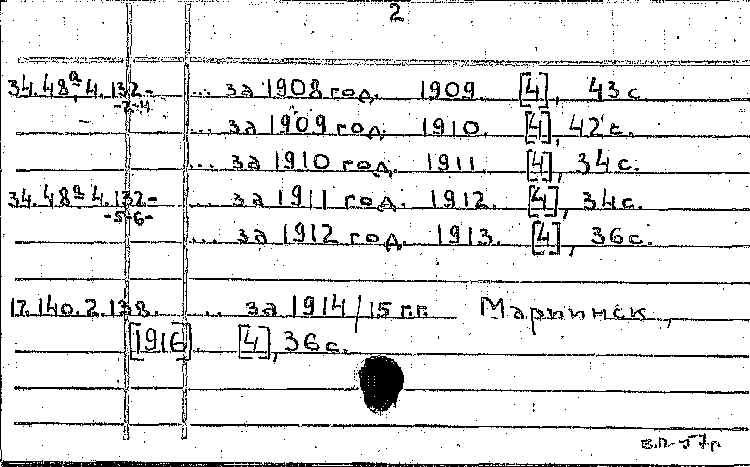 2
34.48а.4.132- ... за 1908 год. 1909 [4], 43с.
-2-4
... за 1909 год. 1910. [4], 42с.
... за 1910 год. 1911. [4], 34с.
34.48а.4.132- ... за 1911 год. 1912. [4], 34с.
-5-6-
... за 1912 год. 1913. [4], 36с.
17.140.2.138. ... за 1914/15 г.г. Мариинск,
[1916]. [4], 36с.